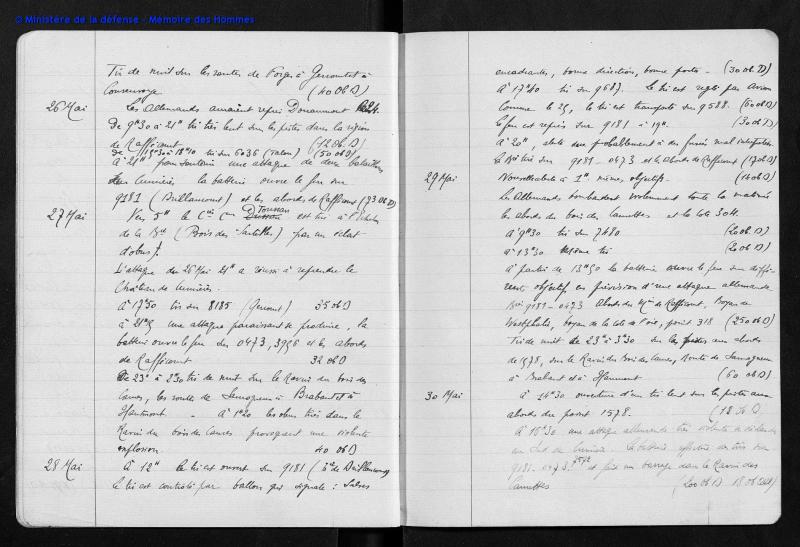 © Ministère de la défense - Mémoire des Hommes
Tir de nuit sur les routes de Forges à Gercourt et à
Consenvoye (40 ob D)
26 Mai Les Allemands auraient repris Douaumont
De 9h30 à 21h tir très lent sur les pistes dans la région
de Raffécourt (72 Ob. D)
de 15h30 à 18h10 tir sur 6036 (Talou) (50 ob D)
à 21h pour soutenir une attaque de deux bataillons
sur Cumières la batterie ouvre le feu sur
9181 (Brillancourt) et les abords de Raffécourt (93 Ob D)
27 Mai Vers 5h le Cer Toussan est tué à l'échelon
de la Bie (Bois des Sartelles) par un éclat
d'obus.
L'attaque du 26 Mai 21h a réussi à reprendre le
Château de Cumières.
à 17h50 tir sur 8185 (Gercourt) 35 ob D
à 21h25 une attaque paraissant se produire, la
batterie ouvre le feu sur 0473, 3956 et les abords
de Raffécourt 32 ob D
De 23h à 2h30 tir de nuit sur le Ravin du bois des
Caures, les routes de Samogneux à Brabant et à
Haumont. à 1h20 les obus tirés dans le
Ravin du bois des Caures provoquent une violente
explosion. 40 ob D
28 Mai à 12h le tir est ouvert sur 9181
le tir est contrôlé par ballon qui signale : Salves
encadrantes, bonne direction, bonne portée - (30 ob D)
à 17h10 tir sur 9687. Le tir est réglé par Avion
Comme le 25, le tir est transporté sur 9588. (60 ob D)
le feu est repris sur 9181 à 19h. (30 ob D)
à 20h, alerte due probablement à des fusées mal interprétées.
La Bie tire sur 9181 - 0473 et les abords de Raffécourt (17 ob D)
29 Mai Nouvelle alerte à 1h. mêmes objectifs. (14 ob D)
Les Allemands bombardent violemment toute la matinée
les abords du bois des Caurettes et la cote 304.
à 9h30 tir sur 7480 (20 ob D)
à 13h30 même tir (20 ob D)
à partir de 13h50 la batterie ouvre le feu sur diffé-
rents objectifs en prévision d'une attaque allemande
9181 - 0473 Abords du Min de Raffécourt, Boyau de
Westphalie, boyau de la cote de l'Oie, point 318 (250 ob D)
Tir de nuit de 23h à 3h30 sur les pistes aux abords
de 1578, sur le Ravin du Bois des Caures, Route de Samogneux
à Brabant et à Haumont (60 ob D)
30 Mai à 14h30 ouverture d'un tir lent sur les pistes aux
abords du point 1578. (18 ob D)
à 16h30 une attaque allemande très violente se déclanche
au Sud de Cumières. La batterie effectue des tirs sur
9181 - 0473 - 2572 et fait un barrage dans le Ravin des
Caurettes (200 ob D 18 ob)